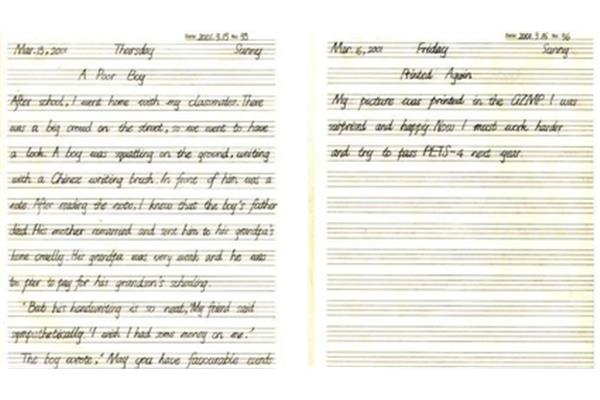 Date: 2001.3.15 No: 35
Mar.15,2001 Thursday Sunny
A Poor Boy
After school, I went home with my classmates. There
was a big crowd on the street, so we went to have
a look. A boy was squatting on the ground, writing
with a Chinese writing brush. In front of him was a
note. After reading the note, I knew that the boy's father
died. His mother remarried and sent him to his grandpa's
home cruelly. His grandpa was very weak and he was
too poor to pay for his grandson's schooling.
"But his handwriting is so neat," My friend said
sympathetically. "I wish I had some money on me."
The boy wrote, "May you have favourable
Date: 2001.3.16 No: 36
Mar.16,2001 Friday Sunny
Printed Again
My picture was printed in the GZMP. I was
surprised and happy. Now I must work harder
and try to pass PETS-4 next year.